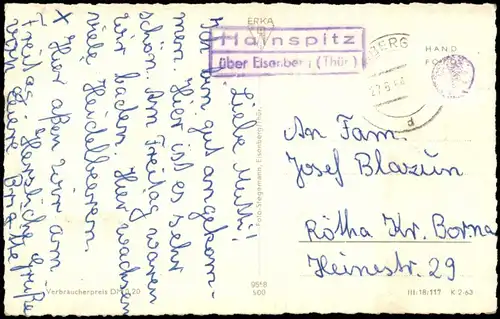 ERKA
Hainspitz
über Eisenberg (Thür)
BERG
d
HAND
Liebe Mutti!
Ich bin gut angekom-
men. Hier ist es sehr
schön. Am Freitag waren
wir baden. Hier wachsen
viele Heidelbeeren.
X Hier aßen wir am
Freitag. Herzliche Grüße
von Deiner Brigitte
An Fam.
Josef Blazun
Rötha Kr. Borna
Heinestr. 29
Foto-Stegemann, Eisenberg/Thür.
Verbraucherpreis DM 0,20
9518
509
III/18/117 K 2/63